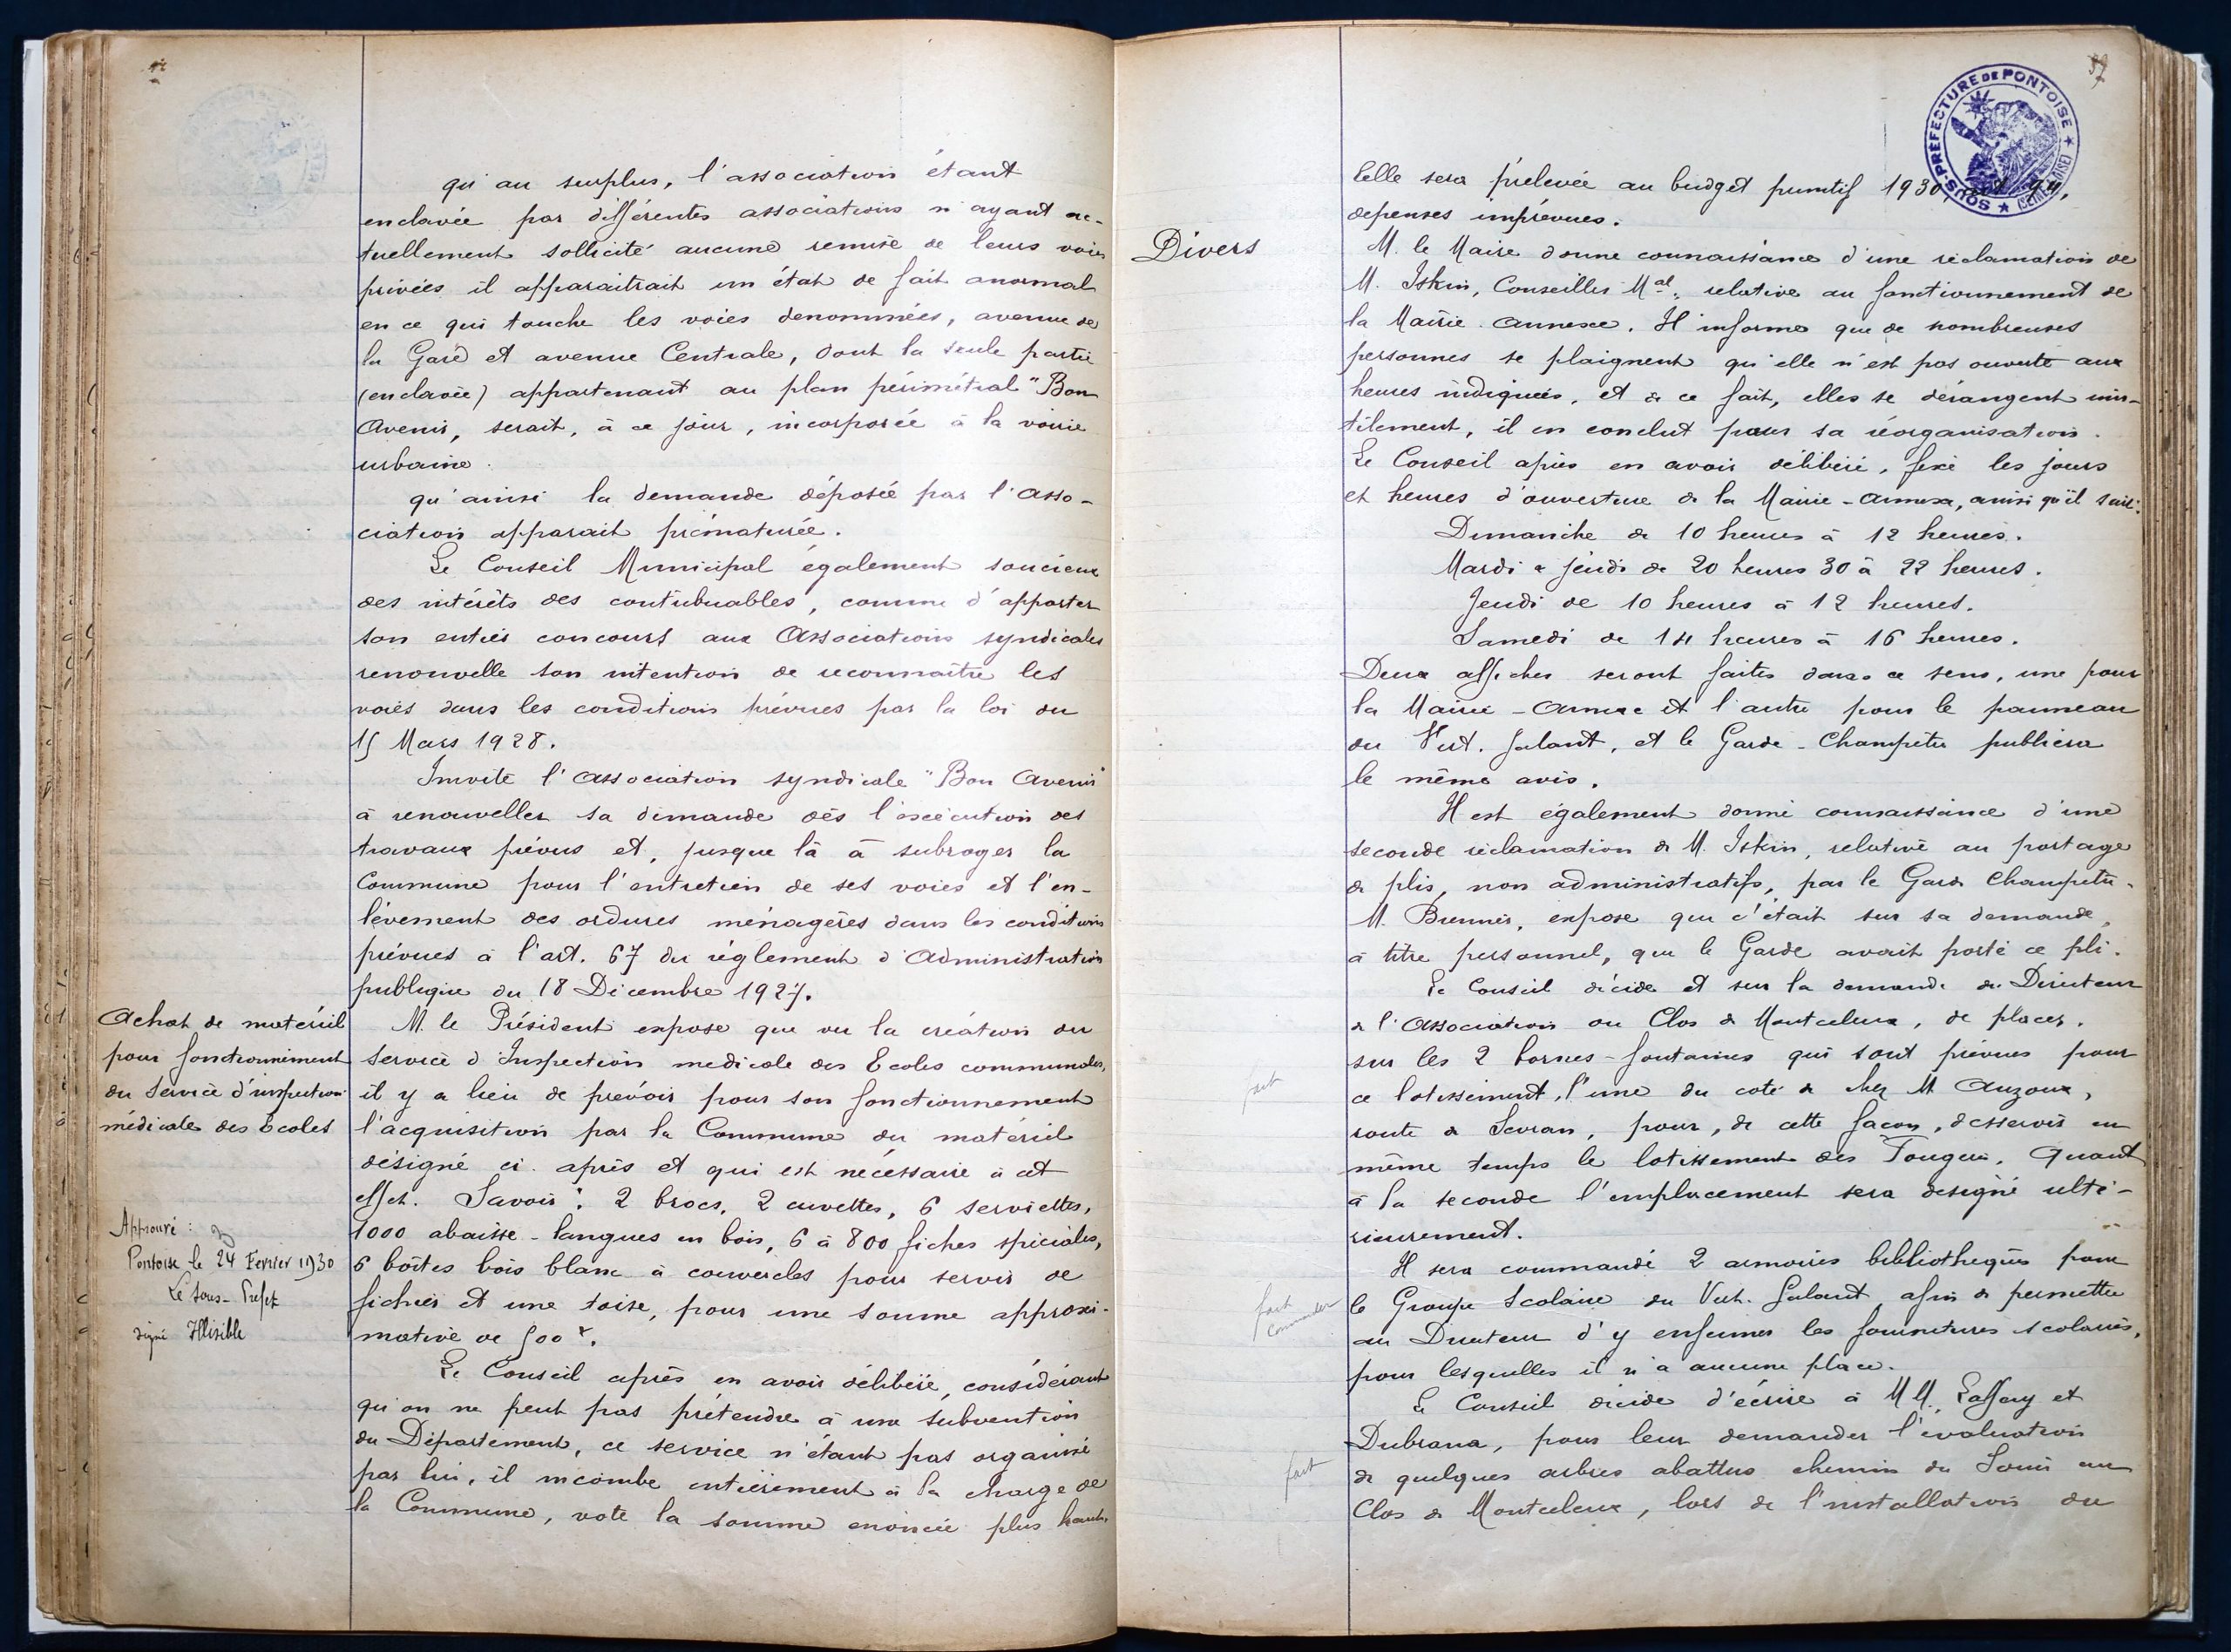 qu'au surplus, l'association étant
enclavée par différentes associations n'ayant ac-
tuellement sollicité aucune remise de leurs voies
privées il apparaitrait un état de fait anormal
en ce qui touche les voies denommées, avenue de
la Gare et avenue Centrale, dont la seule partie
(enclavée) appartenant au plan périmétral "Bon
Avenir, serait, à ce jour, incorporée à la voirie
urbaine.
qu'ainsi la demande déposée par l'Asso-
ciation apparait prématurée.
Le Conseil Municipal également soucieux
des intérêts des contribuables, comme d'apporter
son entier concours aux Associations syndicales
renouvelle son intention de reconnaître les
voies dans les conditions prévues par la loi du
15 Mars 1928.
Invite l'Association syndicale "Bon Avenir"
à renouveller sa demande dès l'exécution des
travaux prévus et, jusque là à subroger la
Commune pour l'entretien de ses voies et l'en-
lèvement des ordures ménagères dans les conditions
prévues à l'art. 67 du règlement d'Administration
publique du 18 Décembre 1927.
Achat de matériel
pour fonctionnement
du Service d'inspection
médicale des Ecoles
M. le Président expose que vu la création du
service d'Inspection medicale des Ecoles communales,
il y a lieu de prévoir pour son fonctionnement
l'acquisition par la Commune du matériel
désigné ci-après et qui est nécessaire à cet
effet. Savoir : 2 brocs, 2 cuvettes, 6 serviettes,
1000 abaisse-langues en bois, 6 à 800 fiches spéciales,
6 boîtes bois blanc à couvercles pour servir de
fichier et une toise, pour une somme approxi-
mative de 500 f.
Approuvé :
Pontoise le 24 Février 1930
Le Sous-Préfet
signé Illisible
Le Conseil après en avoir délibéré, considérant
qu'on ne peut pas prétendre à une subvention
du Département, ce service n'étant pas organisé
par lui, il incombe entièrement à la charge de
la Commune, vote la somme énoncée plus haut.
57
SOUS-PREFECTURE DE PONTOISE
(SEINE-&-OISE)
Celle sera prélevée au budget primitif 1930,
depenses imprévues.
Divers
M. le Maire donne connaissance d'une réclamation de
M. Iskin, Conseiller Mal, relative au fonctionnement de
la Mairie-Annexe. Il informe que de nombreuses
personnes se plaignent qu'elle n'est pas ouverte aux
heures indiquées, et de ce fait, elles se dérangent inu-
tilement, il en conclut pour sa réorganisation.
Le Conseil après en avoir délibéré, fixe les jours
et heures d'ouverture de la Mairie-Annexe, ainsi qu'il suit:
Dimanche de 10 heures à 12 heures.
Mardi & jeudi de 20 heures 30 à 22 heures.
Jeudi de 10 heures à 12 heures.
Samedi de 14 heures à 16 heures.
Deux affiches seront faites dans ce sens, une pour
la Mairie-Annexe et l'autre pour le panneau
du Vert-Galant, et le Garde-Champêtre publiera
le même avis.
Il est également donné connaissance d'une
seconde réclamation de M. Iskin, relative au portage
de plis, non administratifs, par le Garde Champêtre.
M. Brenner, expose que c'était sur sa demande,
à titre personnel, que le Garde avait porté ce pli.
Le Conseil décide et sur la demande du Directeur
de l'Association du Clos de Montceleux, de placer,
sur les 2 bornes-fontaines qui sont prévues pour
fait
ce lotissement, l'une du coté de chez M Auzoux,
route de Sevran, pour, de cette façon, desservir en
même temps le lotissement des Fougères. Quant
à la seconde l'emplacement sera designé ulté-
rieurement.
Il sera commandé 2 armoires bibliothèques pour
fait
commander
le Groupe Scolaire du Vert-Galant afin de permettre
au Directeur d'y enfermer les fournitures scolaires,
pour lesquelles il n'a aucune place.
Le Conseil décide d'écrire à M M. Laffay et
Dubrana, pour leur demander l'évaluation
fait
de quelques arbres abattus chemin du au
Clos de Montceleux, lors de l'installation du